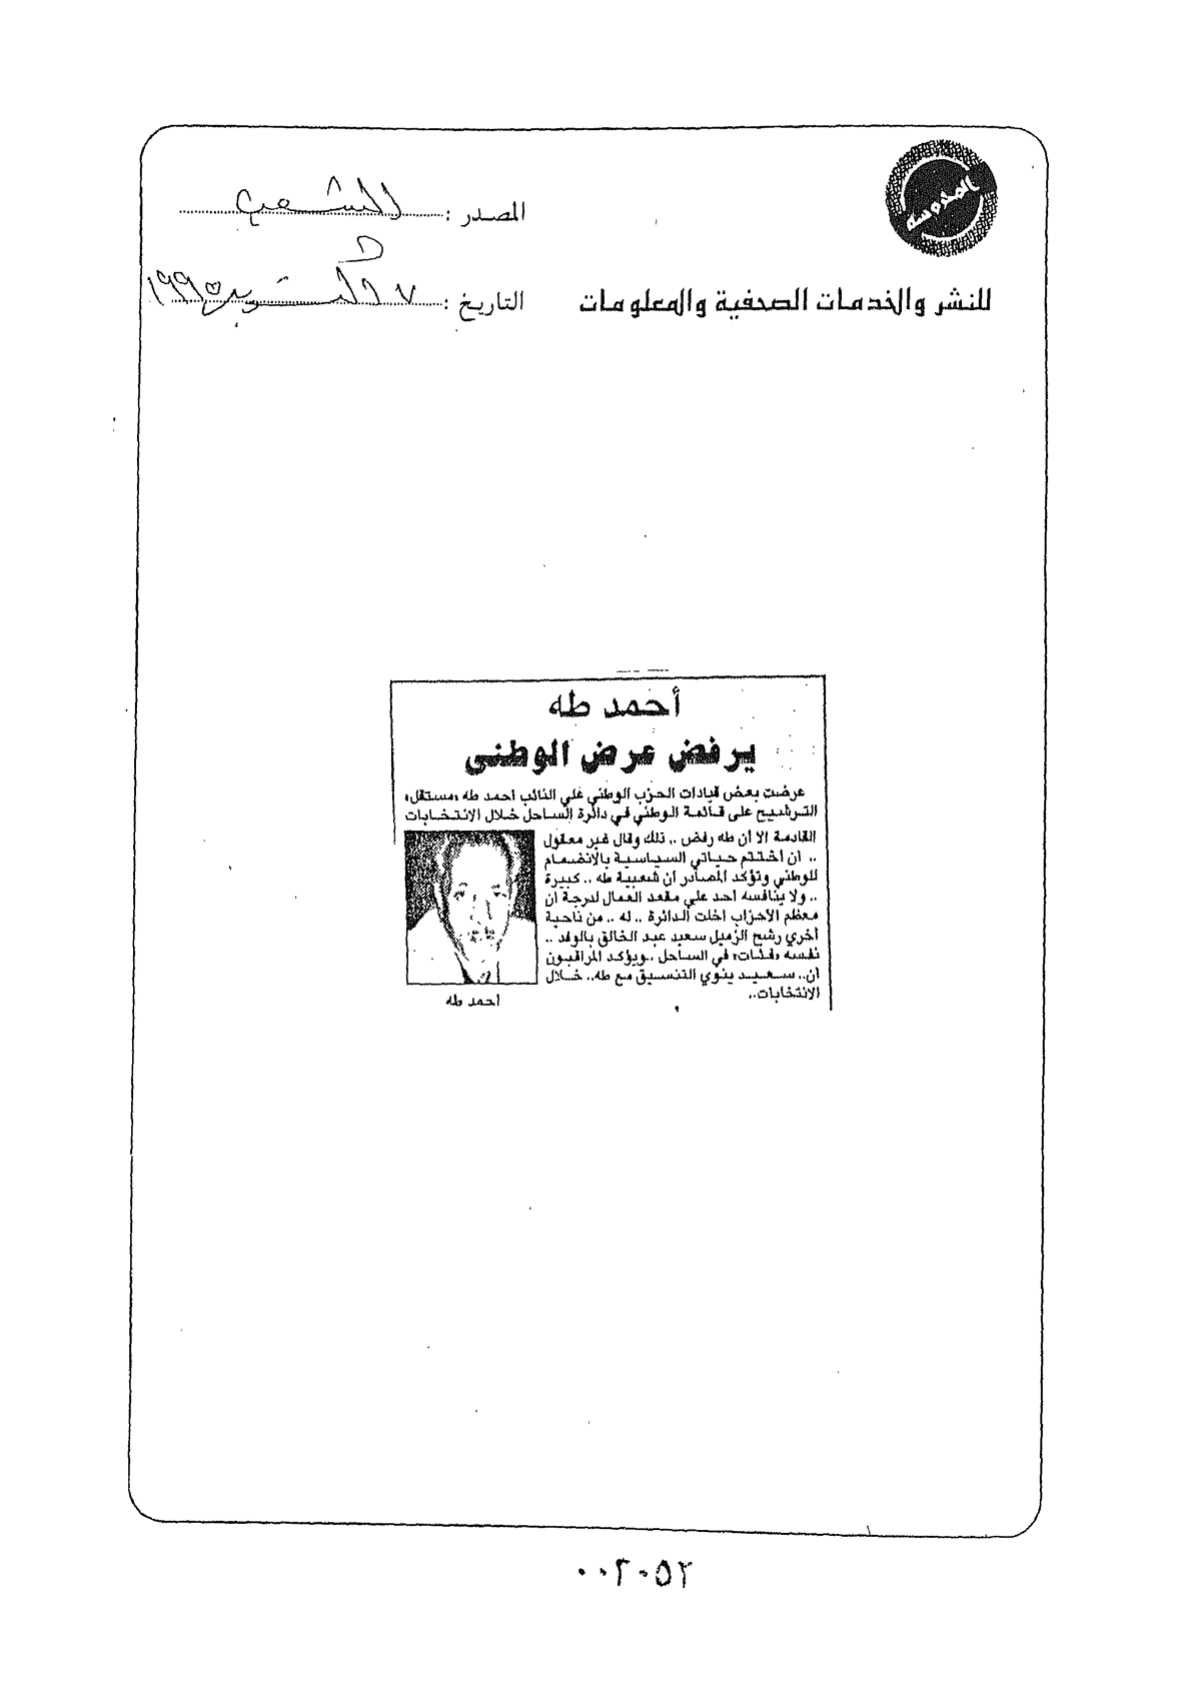 المدوسة
المصدر : الشعب
التاريخ : ٧ اكتوبر ١٩٩٥
للنشر والخدمات الصحفية والمعلومات
أحمد طه
يرفض عرض الوطنى
عرضت بعض قيادات الحزب الوطني علي النائب أحمد طه «مستقل»
الترشيح على قائمة الوطني في دائرة الساحل خلال الانتخابات
القادمة الا أن طه رفض .. ذلك وقال غير معقول
.. ان أختتم حياتي السياسية بالانضمام
للوطني وتؤكد المصادر أن شعبية طه .. كبيرة
.. ولا ينافسه احد علي مقعد العمال لدرجة أن
معظم الأحزاب اخلت الدائرة .. له .. من ناحية
أخري رشح الزميل سعيد عبد الخالق بالوفد ..
نفسه «فئات» في الساحل ..ويؤكد المراقبون
أن.. سعيد ينوي التنسيق مع طه.. خلال
الانتخابات..
احمد طه
٠٠٢٠٥٢